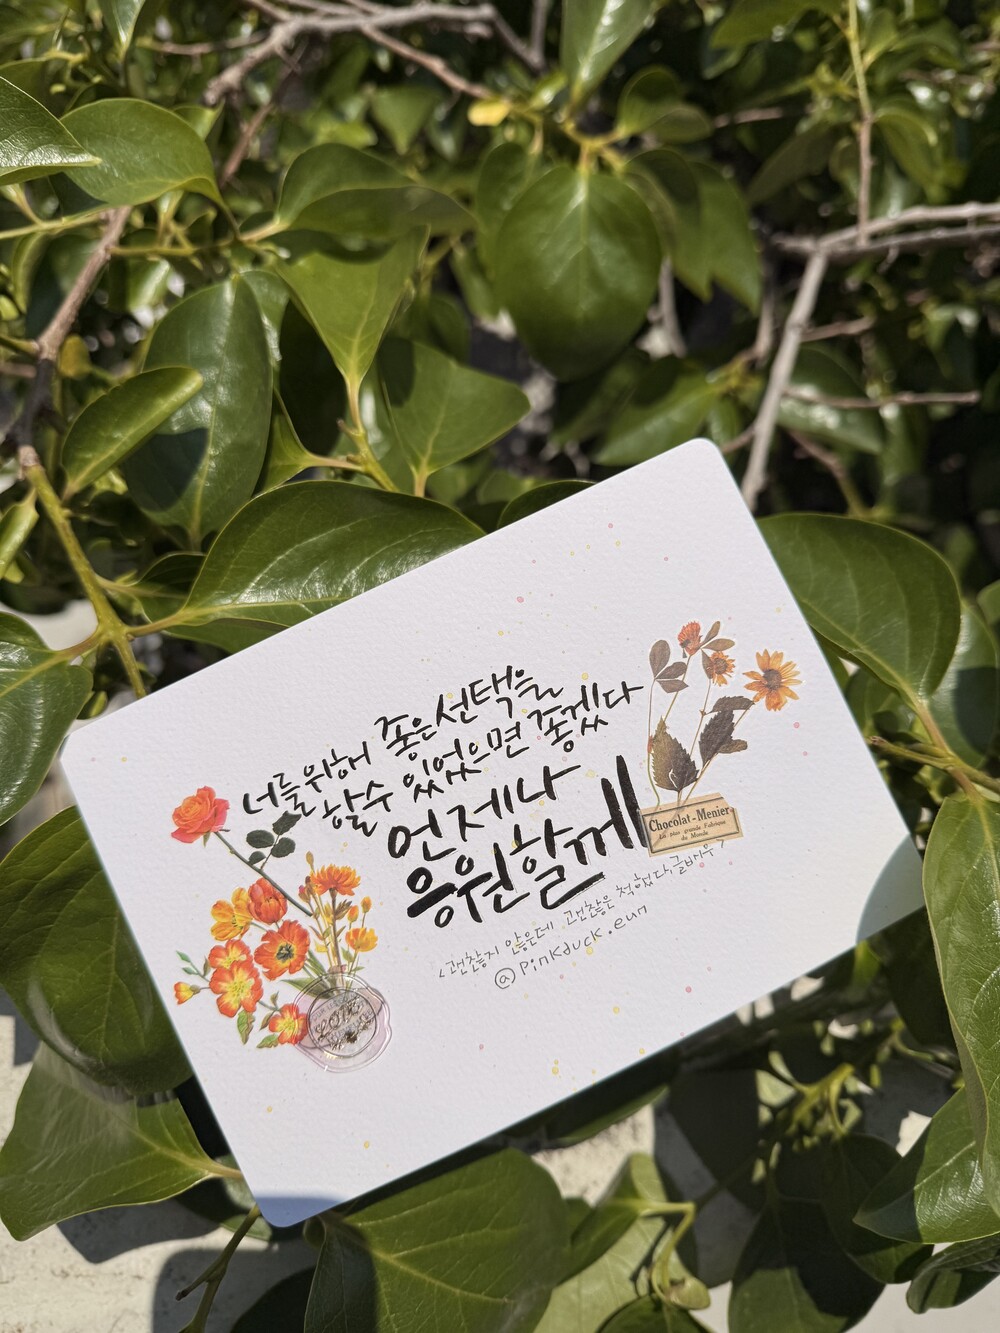 너를위해 좋은선택을
할수 있었으면 좋겠다
언제나
응원할게
<괜찮지 않은데 괜찮은 척했다, 글배우>
@pinkduck.eun
Chocolat-Menier
La plus grande Fabrique
du Monde
LOVE